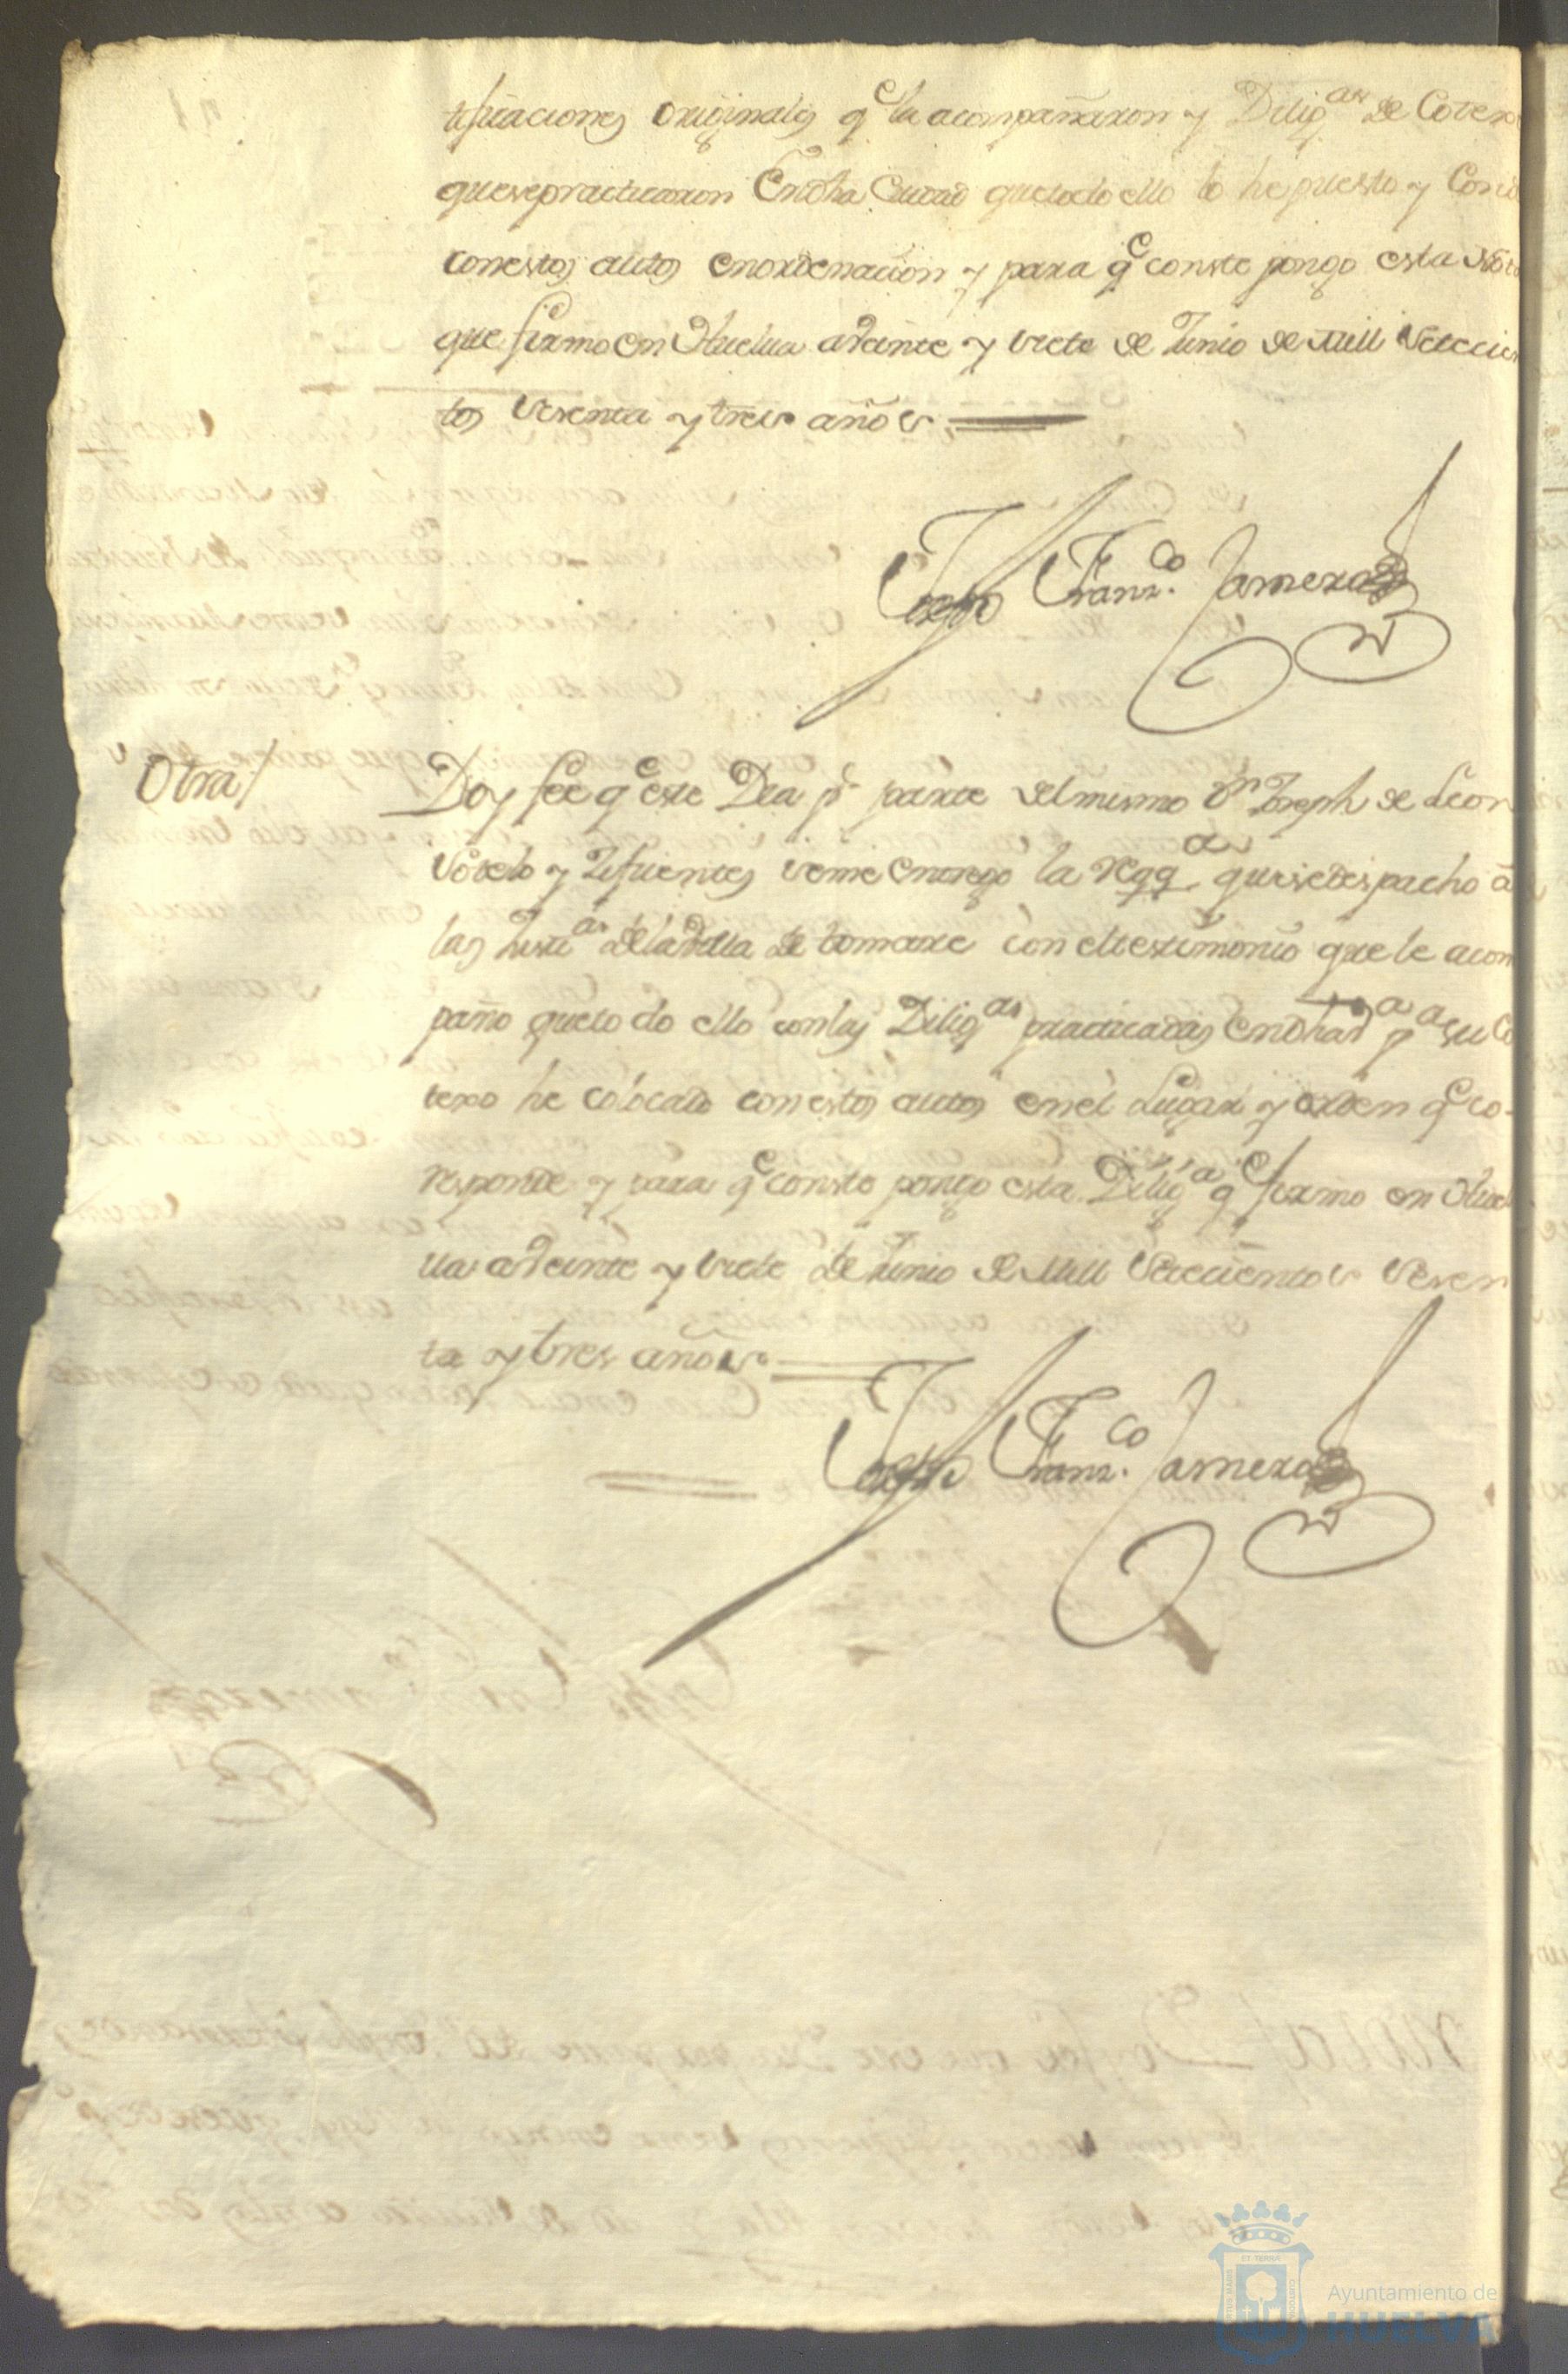 tificaciones originales q.e la acompañaron y Dilig.as de Cotexo
que se practicaron En dha Ciudad que todo ello lo he puesto y
con estos autos en ordenacion y para q.e conste pongo esta Nota
que firmo en Huelua a Veinte y siete de Junio de Mill Setecien
tos sesenta y tres años
Joseph Franz.co Jamera
Otra/
Doy fee q.e este Dia p.r parte del mismo D.n Joseph de Leon
Sotelo y Zifuentes se me entrego la reqq.a que se despacho a
las Just.as de la Villa de tomare con el testimonio que le acom
paño que todo ello con las Dilig.as practicadas en dha V.a p.a su Co
texo he colocado con estos autos en el Lugar y orden q.e co-
responde y para q.e conste pongo esta Dilig.a q.e firmo en Huel
ua a Veinte y siete de Junio de Mill Setecientos sesen
ta y tres años
Joseph Franz.co Jamera
Ayuntamiento de
HUELVA